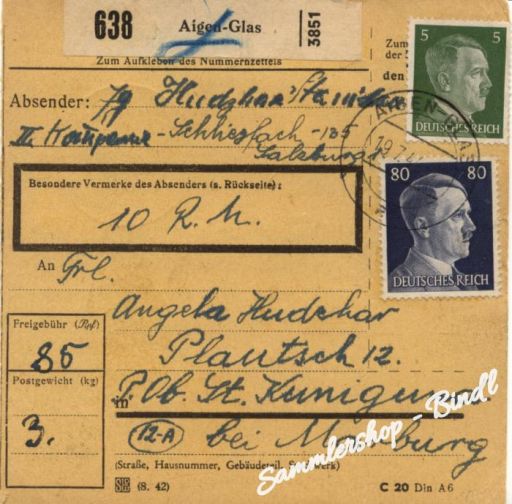 638 Aigen-Glas 3851
Zum Aufkleben des Nummernzettels
Zum
der
den
5 5
DEUTSCHES REICH
Absender: Hudzhar
II Schliessfach - 135
Salzburg
80 80
DEUTSCHES REICH
Besondere Vermerke des Absenders (s. Rückseite):
10 R. M.
An Frl.
Angela Hudzhar
Plautsch 12.
Freigebühr (Rpf)
85
Postgewicht (kg)
3.
in Ob. St. Kunigund
(12-A) bei Marburg
(Straße, Hausnummer, Gebäudeteil, Stockwerk)
(8. 42) C 20 Din A 6
Sammlershop - Bindl